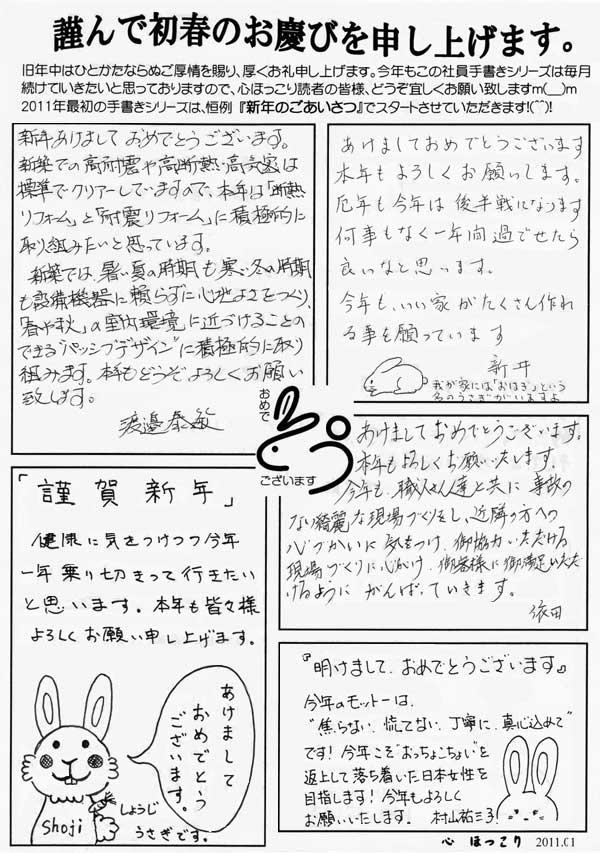 謹んで初春のお慶びを申し上げます。
旧年中はひとかたならぬご厚情を賜り、厚くお礼申し上げます。今年もこの社員手書きシリーズは毎月
続けていきたいと思っておりますので、心ほっこり読者の皆様、どうぞ宜しくお願い致しますm(__)m
2011年最初の手書きシリーズは、恒例『新年のごあいさつ』でスタートさせていただきます!(^^)!
新年あけましておめでとうございます。
新築での高耐震や高断熱・高気密は
標準でクリアーしていますので、本年は「断熱
リフォーム」と「耐震リフォーム」に積極的に
取り組みたいと思っています。
新築では、暑い夏の時期も寒い冬の時期
も設備機器に頼らずに心地よさをつくり、
「春や秋」の室内環境に近づけることの
できる"パッシブデザイン"に積極的に取り
組みます。本年もどうぞよろしくお願い
致します。
渡邉泰敏
あけましておめでとうございます
本年もよろしくお願いします。
厄年も今年は後半戦になります
何事もなく一年間過ごせたら
良いなと思います。
今年も、いい家がたくさん作れ
る事を願っています
新井
我が家には「おはぎ」という
名のうさぎがいますよ
おめで
とう
ございます
あけましておめでとうございます。
本年もよろしくお願いいたします。
今年も、職人さん達と共に事故の
ない綺麗な現場づくりをし、近隣の方への
心づかいに気をつけ、御協力いただける
現場づくりに心がけ、御客様に御満足いただ
けるようにがんばっていきます。
依田
「謹賀新年」
健康に気をつけつつ今年
一年乗り切って行きたい
と思います。本年も皆々様
よろしくお願い申し上げます。
あけまして
おめでとう
ございます。
Shoji
しょうじ
うさぎです。
『明けまして、おめでとうございます』
今年のモットーは、
"焦らない、慌てない、丁寧に、真心込めて"
です!今年こそ"おっちょこちょい"を
返上して落ち着いた日本女性を
目指します!今年もよろしく
お願いいたします。 村山祐三子!
心 ほっこり 2011.01